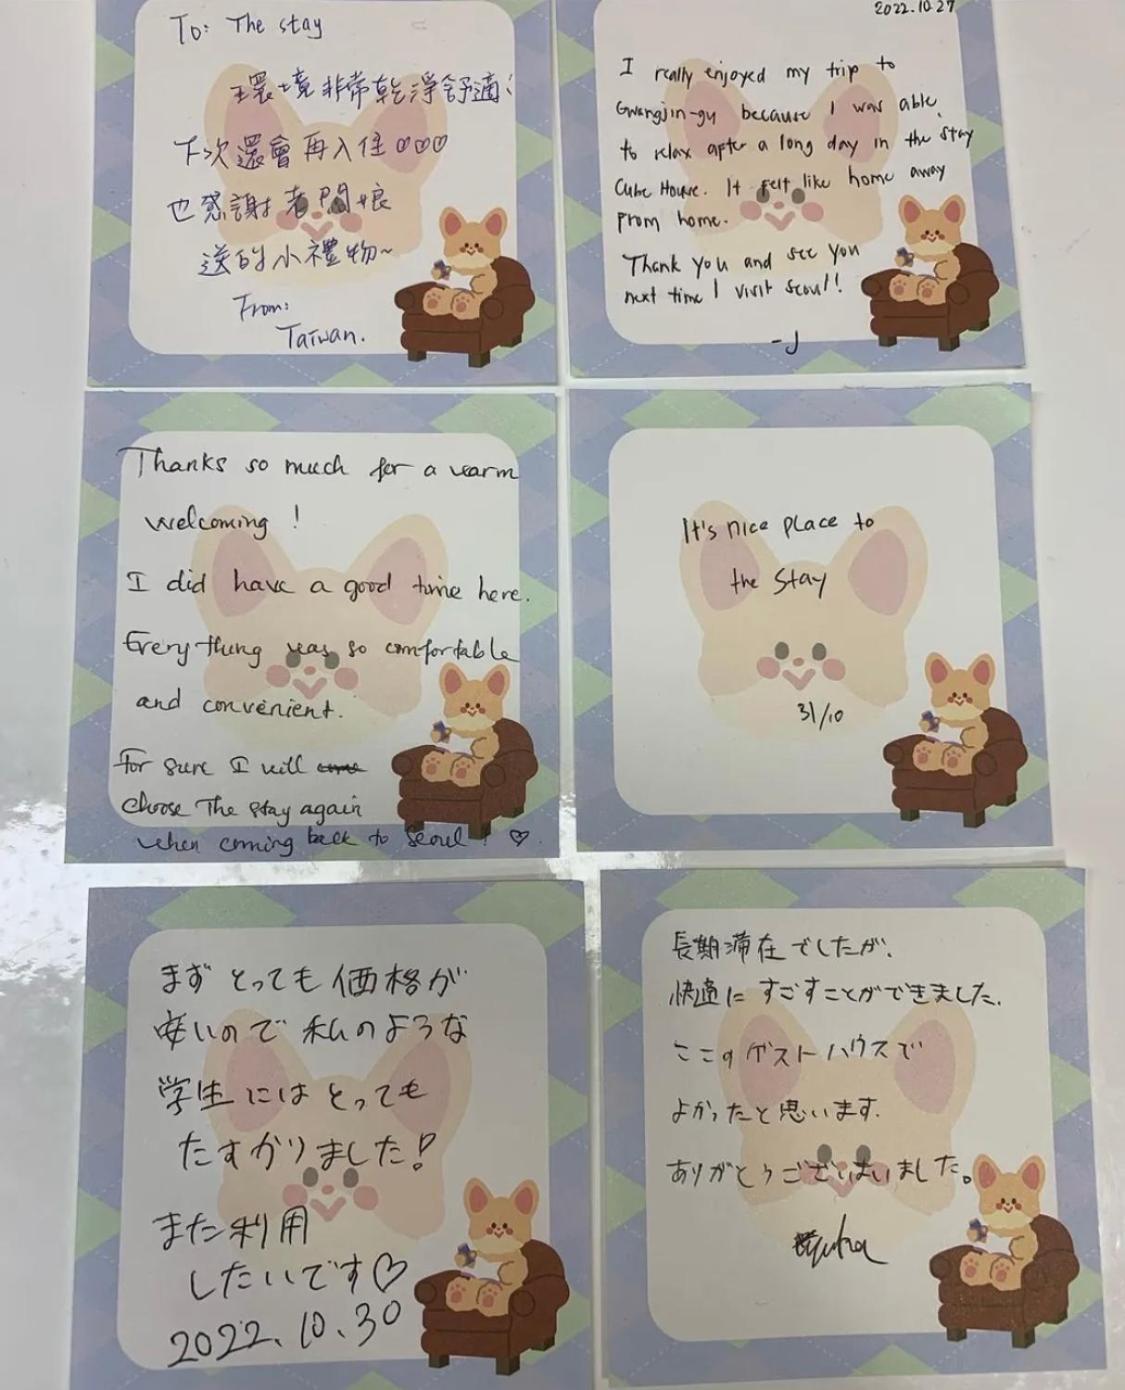 To: The stay
環境非常乾淨舒適!
下次還會再入住♡♡♡
也感謝老闆娘
送的小禮物~
From:
Taiwan.
2022.10.27
I really enjoyed my trip to
Gwangjin-gu because I was able
to relax after a long day in the Stay
Cube House. It felt like home away
from home.
Thank you and see you
next time I visit Seoul!!
-J
Thanks so much for a warm
welcoming !
I did have a good time here.
Everything was so comfortable
and convenient.
For sure I will
choose The stay again
when coming back to Seoul ! ♡
It's nice place to
the stay
31/10
まず とっても 価格が
安いので 私のような
学生には とっても
たすかりました!
また利用
したいです♡
2022.10.30
長期滞在でしたが、
快適に すごすことができました.
ここのゲストハウスで
よかったと思います.
ありがとうございまいました。